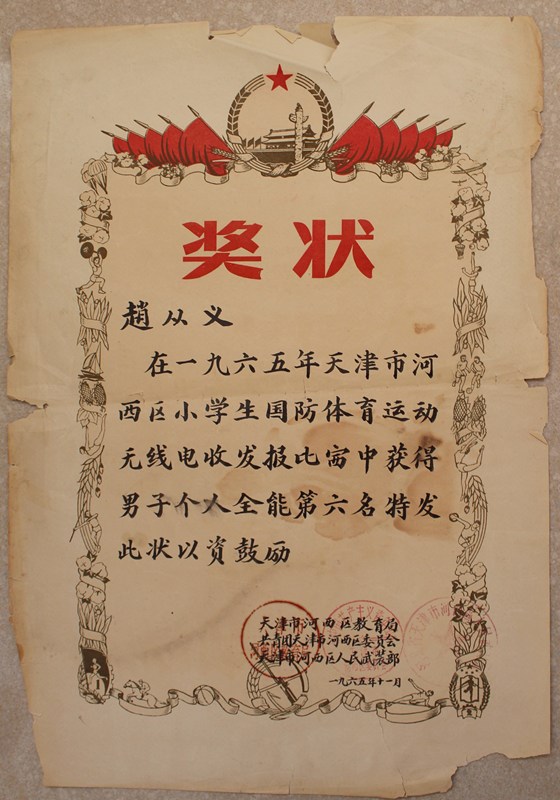 奖状
趙从义
在一九六五年天津市河
西区小学生国防体育运动
无线电收发报比赛中获得
男子个人全能第六名特发
此状以资鼓励
天津市河西区教育局
共青团天津市河西区委员会
天津市河西区人民武装部
一九六五年十一月